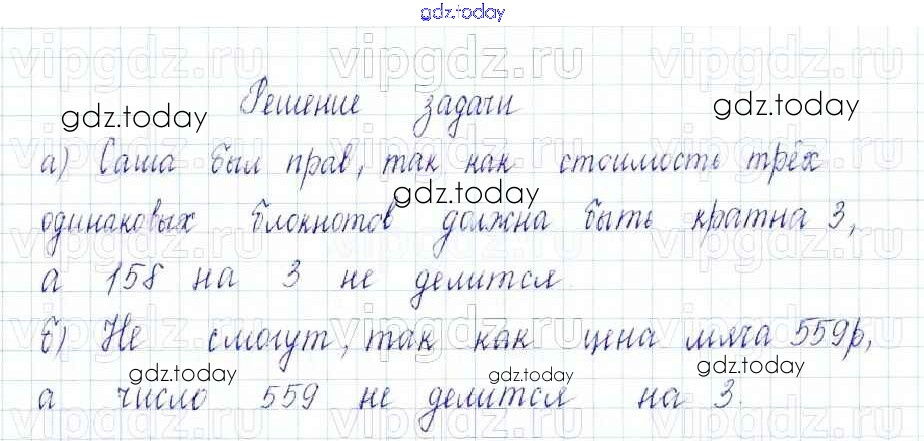 gdz.today
Решение задачи
а) Саша был прав, так как стоимость трёх
одинаковых блокнотов должна быть кратна 3,
а 158 на 3 не делится.
б) Не смогут, так как цена мяча 559р,
а число 559 не делится на 3.
vipgdz.ru
gdz.today
gdz.today
gdz.today
gdz.today
gdz.today
gdz.today